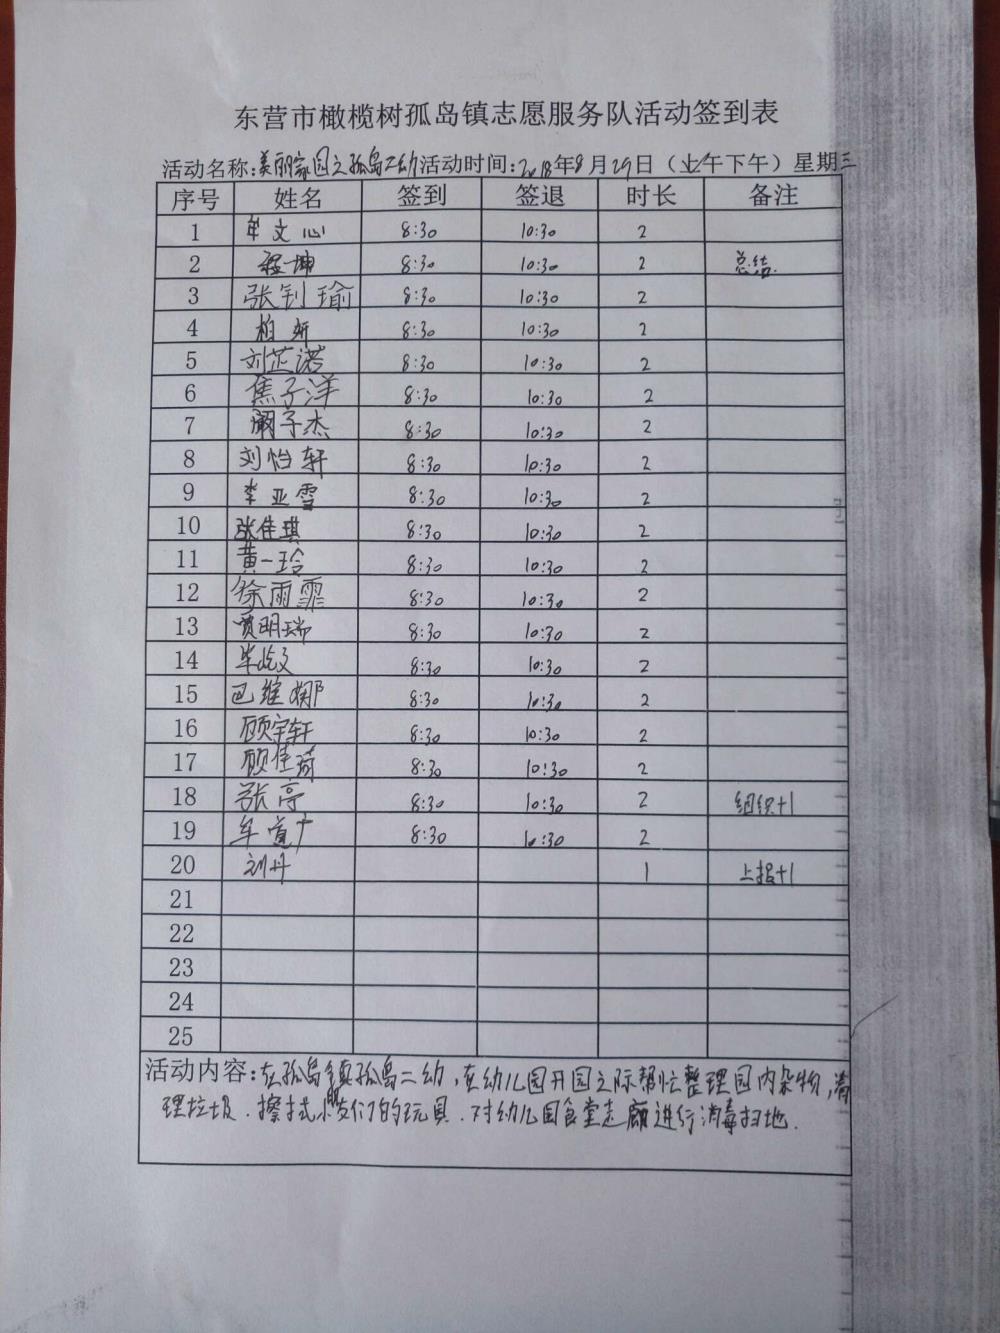 东营市橄榄树孤岛镇志愿服务队活动签到表
活动名称:美丽家园之孤岛二幼 活动时间:2018年8月29日（上午下午）星期三
序号 姓名 签到 签退 时长 备注
1 牟文心 8:30 10:30 2
2 程坤 8:30 10:30 2 总结
3 张钊瑜 8:30 10:30 2
4 柏妍 8:30 10:30 2
5 刘芷诺 8:30 10:30 2
6 焦子洋 8:30 10:30 2
7 阚子杰 8:30 10:30 2
8 刘怡轩 8:30 10:30 2
9 李亚雪 8:30 10:30 2
10 张佳琪 8:30 10:30 2
11 黄一玲 8:30 10:30 2
12 徐雨霏 8:30 10:30 2
13 贾明瑞 8:30 10:30 2
14 8:30 10:30 2
15 巴维娜 8:30 10:30 2
16 顾宇轩 8:30 10:30 2
17 顾佳琦 8:30 10:30 2
18 张亭 8:30 10:30 2 组织+1
19 牟宣广 8:30 10:30 2
20 刘丹 1 上报+1
21
22
23
24
25
活动内容:在孤岛镇孤岛二幼,在幼儿园开园之际帮忙整理园内杂物,清
理垃圾.擦拭小朋友们的玩具.对幼儿园食堂走廊进行消毒扫地.